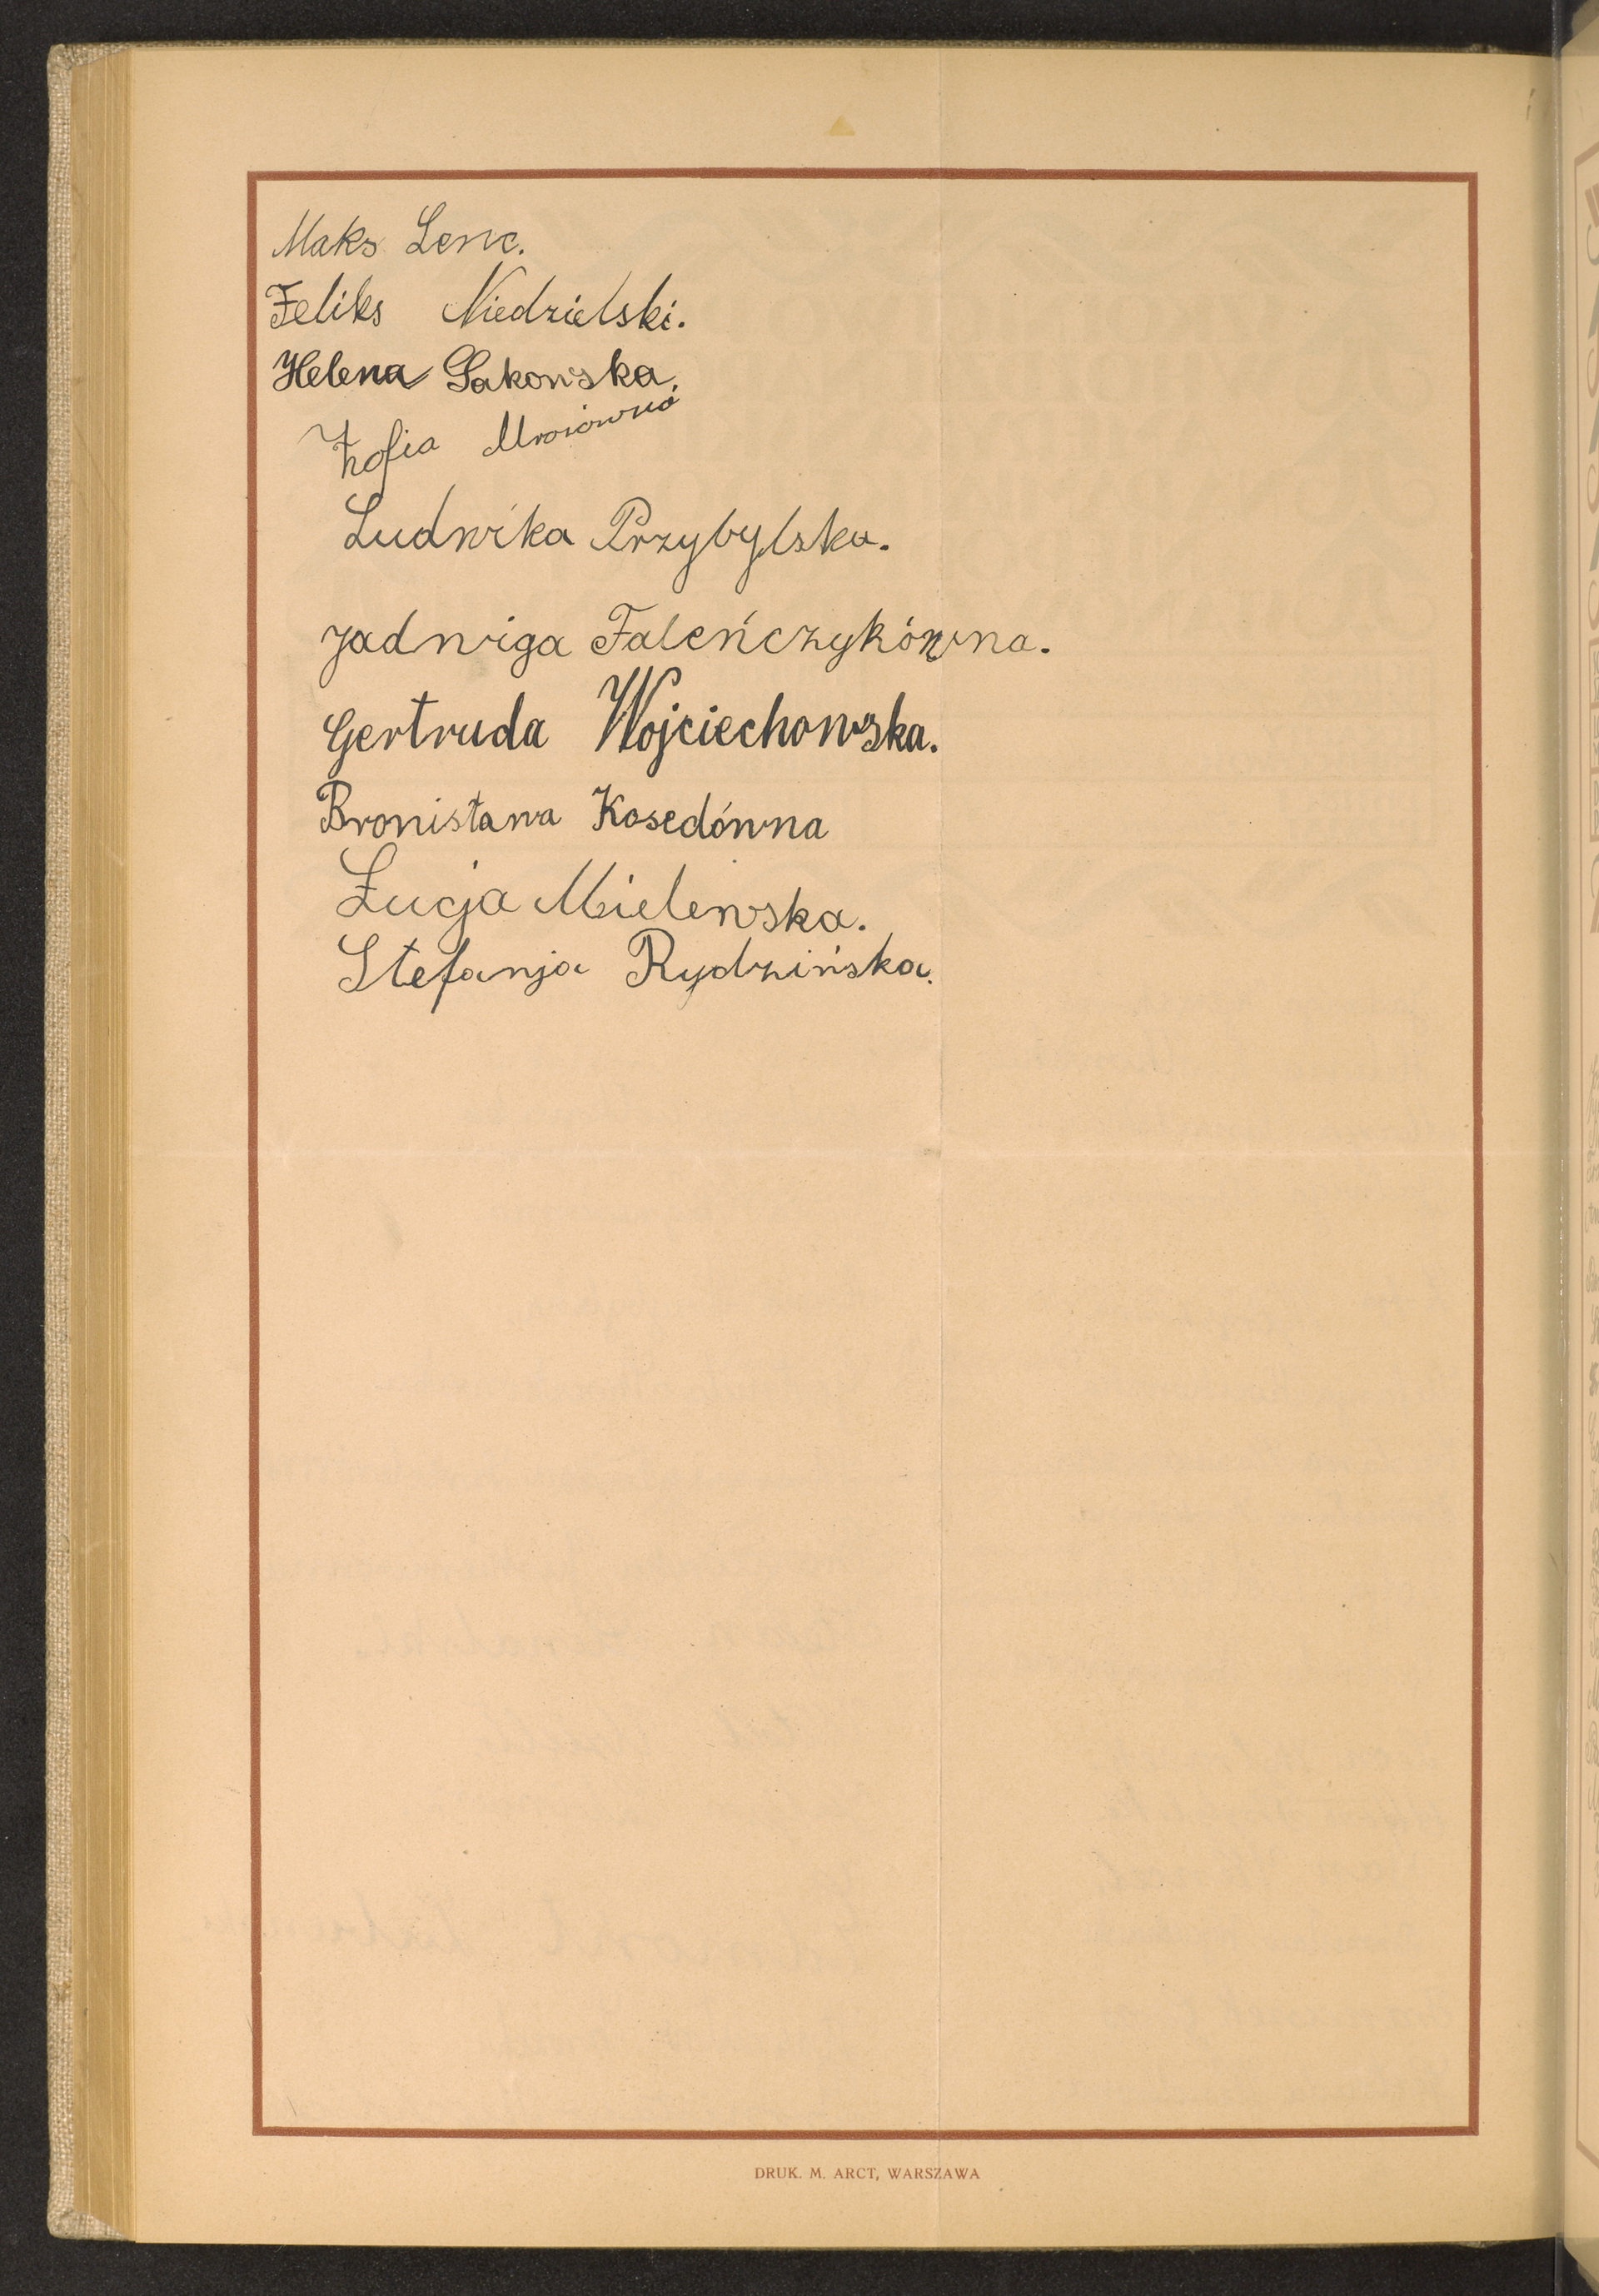 Maks Lenc.
Feliks Niedzielski.
Helena Sakowska.
Zofia
Ludwika Przybylska.
Jadwiga Faleńczykówna.
Gertruda Wojciechowska.
Bronisława Kosedówna
Łucja Mielewska.
Stefanja Rydzińska.
DRUK. M. ARCT, WARSZAWA